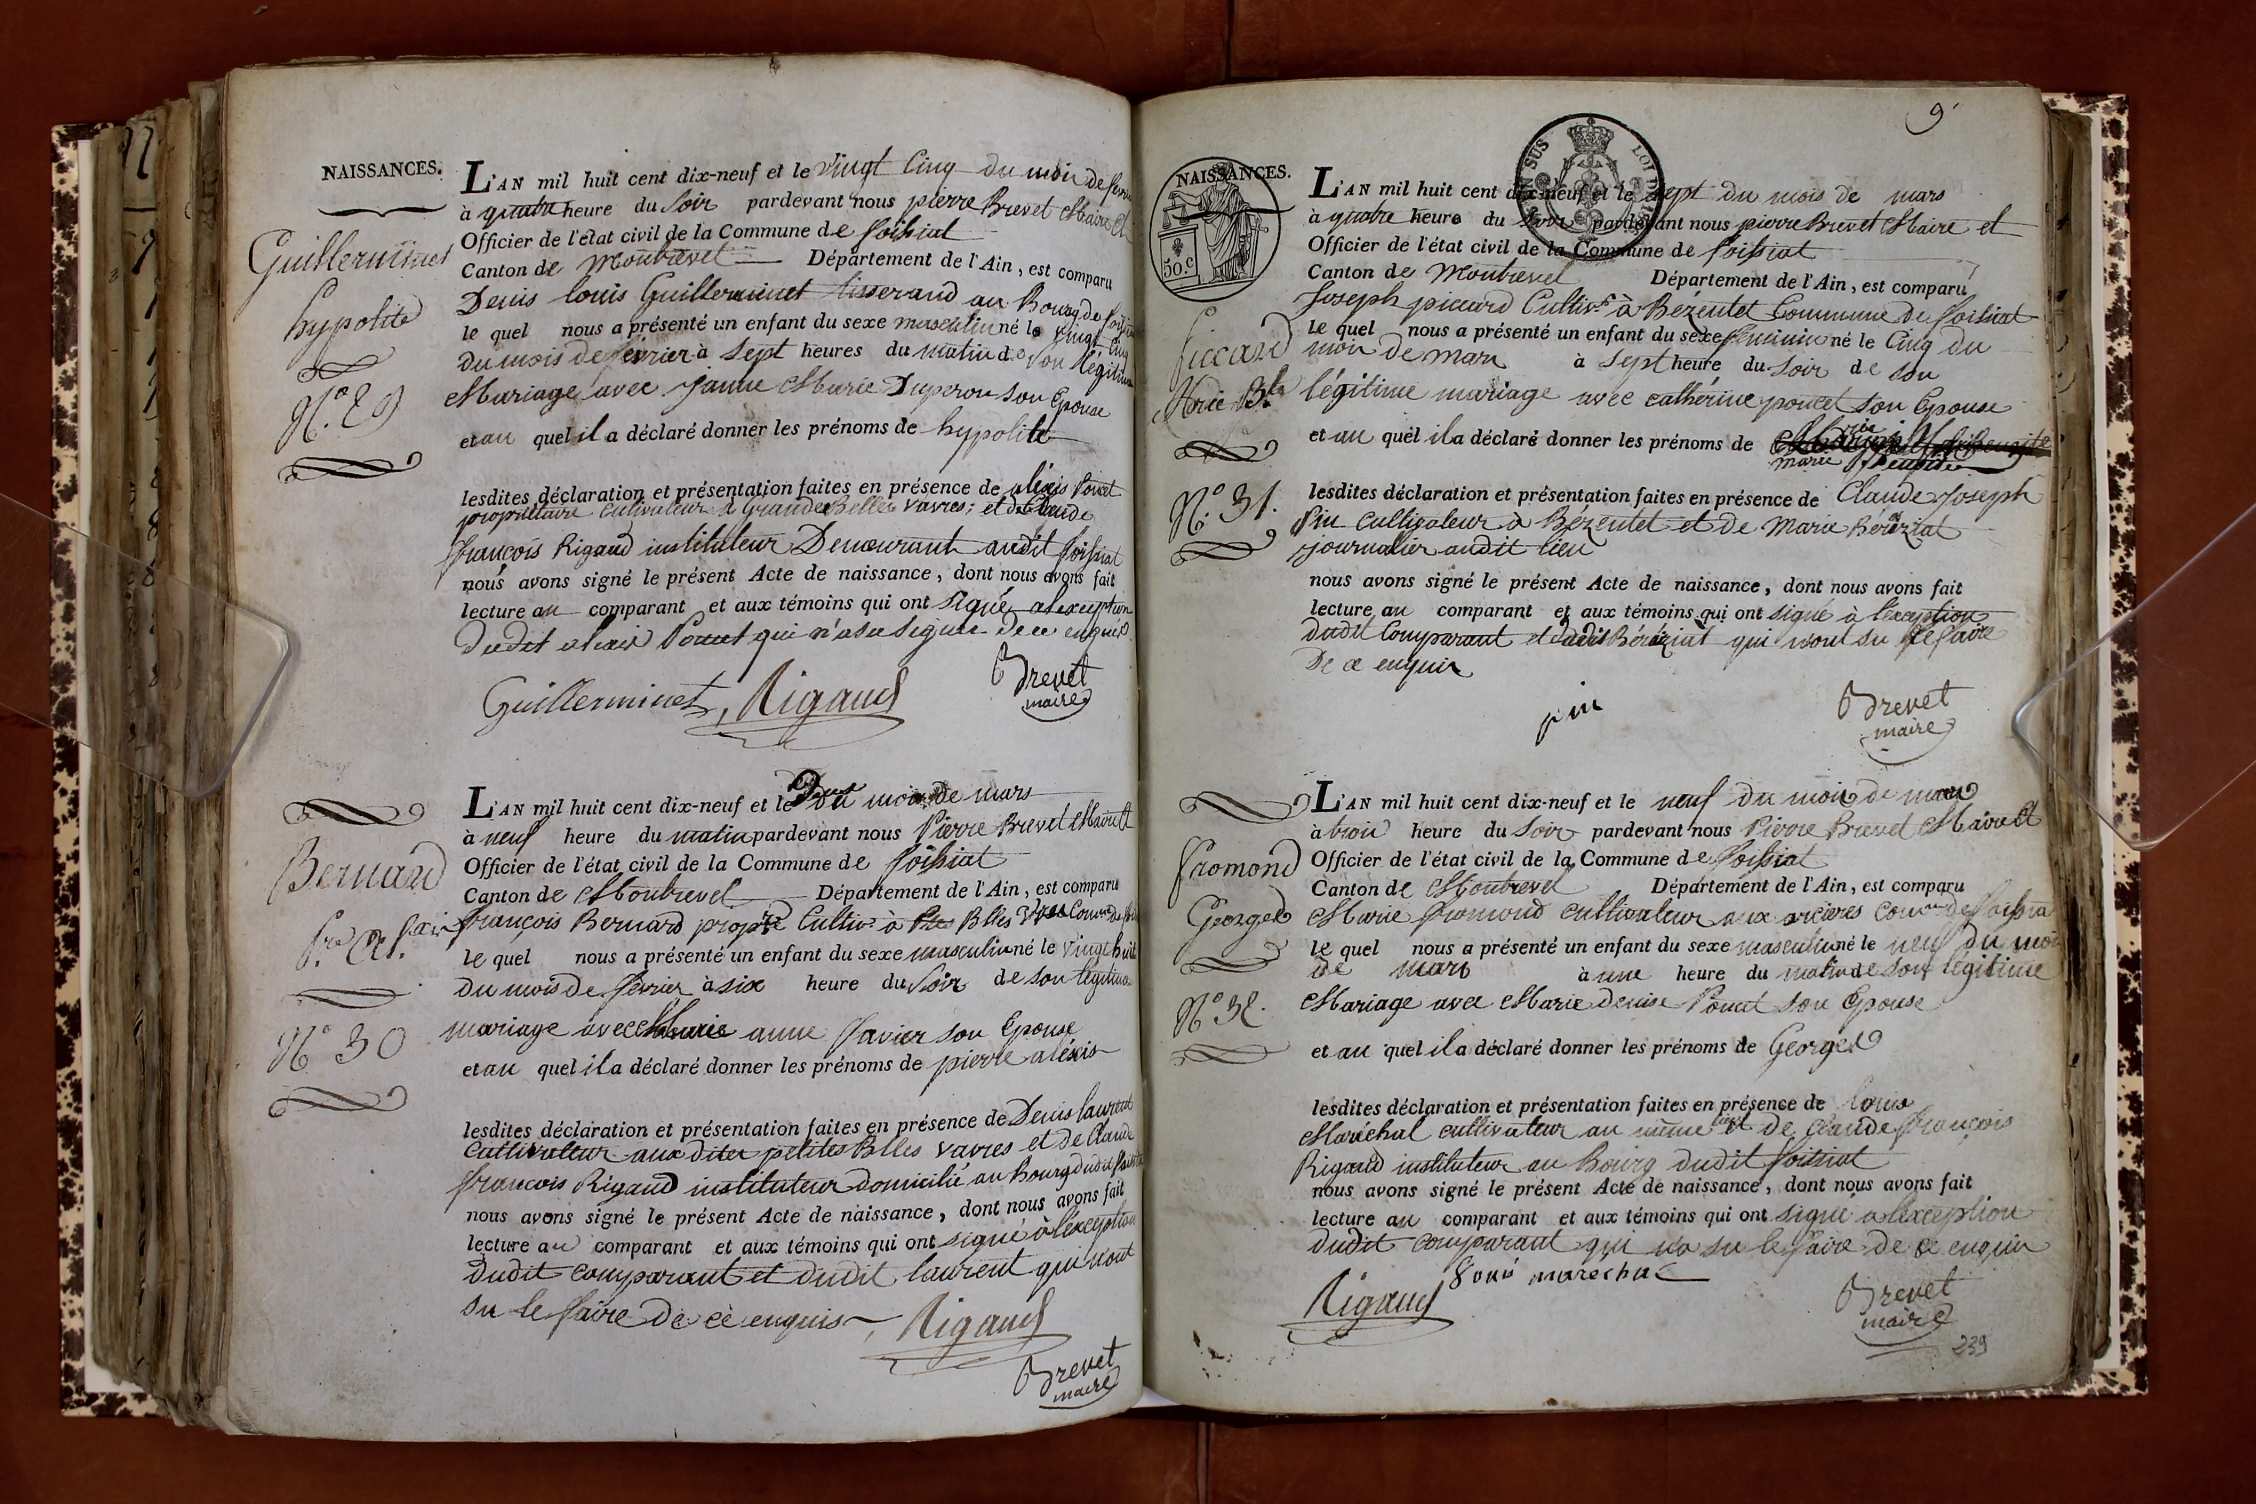 NAISSANCES.
Guillerminet
hypolite
N.° 29
L'AN mil huit cent dix-neuf et le vingt Cinq du mois de
à quatre heure du Soir pardevant nous pierre Brevet Maire et
Officier de l'état civil de la Commune de foissiat
Canton de Montrevel Département de l'Ain, est comparu
Denis louis Guillerminet tisserand au Bourg de
le quel nous a présenté un enfant du sexe masculin né le vingt Cinq
du mois de février à sept heures du matin de son légitime
Mariage avec Janne Marie Duperon son Epouse
et au quel il a déclaré donner les prénoms de hypolite
lesdites déclaration et présentation faites en présence de aléxis Poncet
propriétaire cultivateur à Grandes Belles vavres; et de Claude
françois Rigaud instituteur Demeurant audit foissiat
nous avons signé le présent Acte de naissance, dont nous avons fait
lecture au comparant et aux témoins qui ont signé, a lexception
dudit alexis Poncet qui n'a su signer de ce enquis
Guillerminet, Rigaud
Brevet
maire
Bernard
N.° 30
L'AN mil huit cent dix-neuf et le Deux du mois de mars
à neuf heure du matin pardevant nous Pierre Brevet Maire et
Officier de l'état civil de la Commune de foissiat
Canton de Montrevel Département de l'Ain, est comparu
françois Bernard propre Cultivr à Ptes Blles
le quel nous a présenté un enfant du sexe masculin né le vingt huit
du mois de février à six heure du Soir de son légitime
mariage avec Marie anne Favier son Epouse
et au quel il a déclaré donner les prénoms de pierre aléxis
lesdites déclaration et présentation faites en présence de Denis laurent
Cultivateur aux dites petites Blles vavres et de Claude
françois Rigaud instituteur domicilié au Bourg dudit
nous avons signé le présent Acte de naissance, dont nous avons fait
lecture au comparant et aux témoins qui ont signé à l'éxception
dudit comparant et dudit laurent qui n'ont
su le faire de ce enquis Rigaud
Brevet
maire
9
NAISSANCES.
50.c
piccard
Marie Bte
N.° 31.
L'AN mil huit cent dix-neuf et le sept du mois de mars
à quatre heure du Soir pardevant nous pierre Brevet Maire et
Officier de l'état civil de la Commune de foissiat
Canton de Montrevel Département de l'Ain, est comparu
Joseph piccard Cultivr à Bézentet Commune de foissiat
le quel nous a présenté un enfant du sexe féminin né le Cinq du
mois de mars à sept heure du Soir de son
légitime mariage avec cathérine poncet son Epouse
et au quel il a déclaré donner les prénoms de
marie Benoite
lesdites déclaration et présentation faites en présence de Claude Joseph
Pin cultivateur à Bézentet et de Marie Béréziat
journalier audit lieu
nous avons signé le présent Acte de naissance, dont nous avons fait
lecture au comparant et aux témoins qui ont signé à l'éxception
dudit Comparant et dudit Béréziat qui n'ont su le faire
De ce enquis
pin
Brevet
maire
fromond
Georges
N.° 32.
L'AN mil huit cent dix-neuf et le neuf du mois de mars
à trois heure du Soir pardevant nous Pierre Brevet Maire et
Officier de l'état civil de la Commune de foissiat
Canton de Montrevel Département de l'Ain, est comparu
Marie fromond cultivateur aux
le quel nous a présenté un enfant du sexe masculin né le neuf du mois
de mars à une heure du matin de son légitime
Mariage avec Marie denise Poncet son Epouse
et au quel il a déclaré donner les prénoms de Georges
lesdites déclaration et présentation faites en présence de louis
Maréchal cultivateur au même lieu et de claude françois
Rigaud instituteur au bourg dudit foissiat
nous avons signé le présent Acte de naissance, dont nous avons fait
lecture au comparant et aux témoins qui ont signé à l'exception
dudit comparant qui n'a su le faire de ce enquis
Rigaud louis marechal
Brevet
maire
239